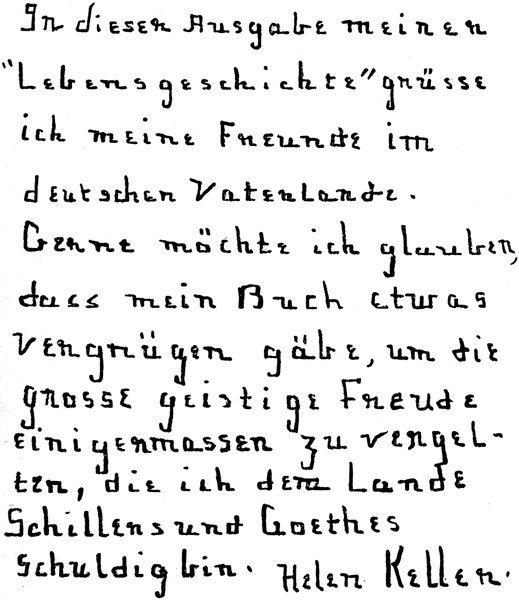 In dieser Ausgabe meiner
"Lebensgeschichte" grüsse
ich meine Freunde im
deutschen Vaterlande.
Gerne möchte ich glauben,
dass mein Buch etwas
Vergnügen gäbe, um die
grosse geistige Freude
einigermassen zu vergel-
ten, die ich dem Lande
Schillers und Goethes
schuldig bin. Helen Keller.